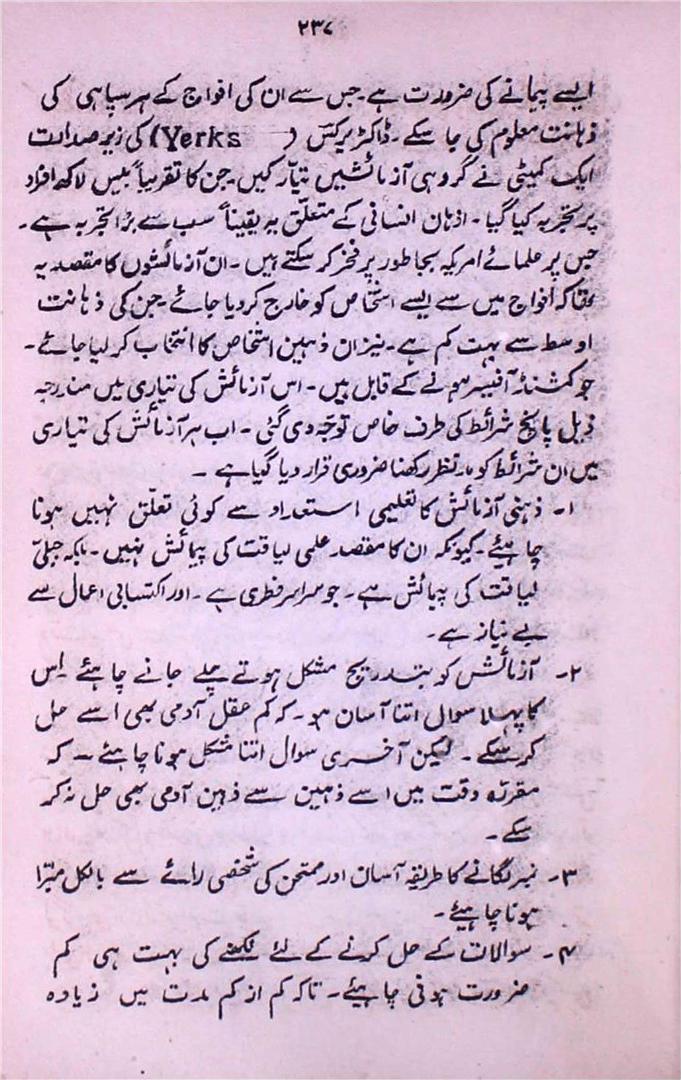 ۲۳۷
ایسے پیمانے کی ضرورت ہے۔ جس سے ان کی افواج کے ہر سپاہی کی
ذہانت معلوم کی جا سکے۔ ڈاکٹر یرکس (Yerks) کی زیر صدارت
ایک کمیٹی نے گروہی آزمائشیں تیار کیں جن کا تقریباً بیس لاکھ افراد
پر تجربہ کیا گیا۔ اذہان انسانی کے متعلق یہ یقیناً سب سے بڑا تجربہ ہے۔
جس پر علمائے امریکہ بجا طور پر فخر کر سکتے ہیں۔ ان آزمائشوں کا مقصد یہ
تھا کہ افواج میں سے ایسے اشخاص کو خارج کر دیا جائے۔ جن کی ذہانت
اوسط سے بہت کم ہے۔ نیز ان ذہین اشخاص کا انتخاب کر لیا جائے۔
جو کمشنڈ آفیسر ہونے کے قابل ہیں۔ اس آزمائش کی تیاری میں مندرجہ
ذیل پانچ شرائط کی طرف خاص توجہ دی گئی۔ اب ہر آزمائش کی تیاری
میں ان شرائط کو مدِ نظر رکھنا ضروری قرار دیا گیا ہے۔
۱۔ ذہنی آزمائش کا تعلیمی استعداد سے کوئی تعلق نہیں ہونا
چاہیئے۔ کیونکہ ان کا مقصد علمی لیاقت کی پیمائش نہیں۔ بلکہ جبلّی
لیاقت کی پیمائش ہے۔ جو سراسر فطری ہے۔ اور اکتسابی اعمال سے
بے نیاز ہے۔
۲۔ آزمائش کو بتدریج مشکل ہوتے چلے جانے چاہئے اس
کا پہلا سوال اتنا آسان ہو۔ کہ کم عقل آدمی بھی اسے حل
کر سکے۔ لیکن آخری سوال اتنا مشکل ہونا چاہئے۔ کہ
مقررہ وقت میں اسے ذہین سے ذہین آدمی بھی حل نہ کر
سکے۔
۳۔ نمبر لگانے کا طریقہ آسان اور ممتحن کی شخصی رائے سے بالکل مبرّا
ہونا چاہیئے۔
۴۔ سوالات کے حل کرنے کے لئے لکھنے کی بہت ہی کم
ضرورت ہونی چاہیئے۔ تاکہ کم از کم مدت میں زیادہ